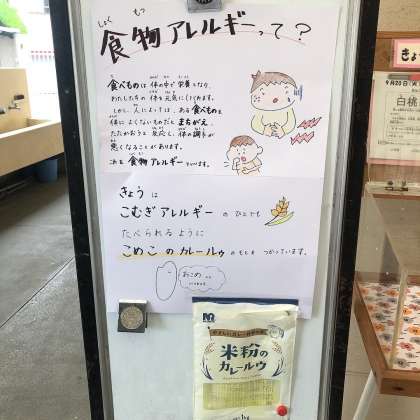 しょく もつ
食物アレルギーって？
食べものは体の中で栄養となり、
わたしたちの体を元気にしてくれます。
しかし、人によっては、ある食べものを
体によくないものだとまちがえ、
たたかおうと反応し、体の調子が
悪くなることがあります。
これを食物アレルギーといいます。
きょうは
こむぎアレルギーのひとでも
たべられるように
こめこのカレールゥのもとをつかっています。
おこめ
米粉の
カレールウ
1kg
きょ
9月20日(火
白桃